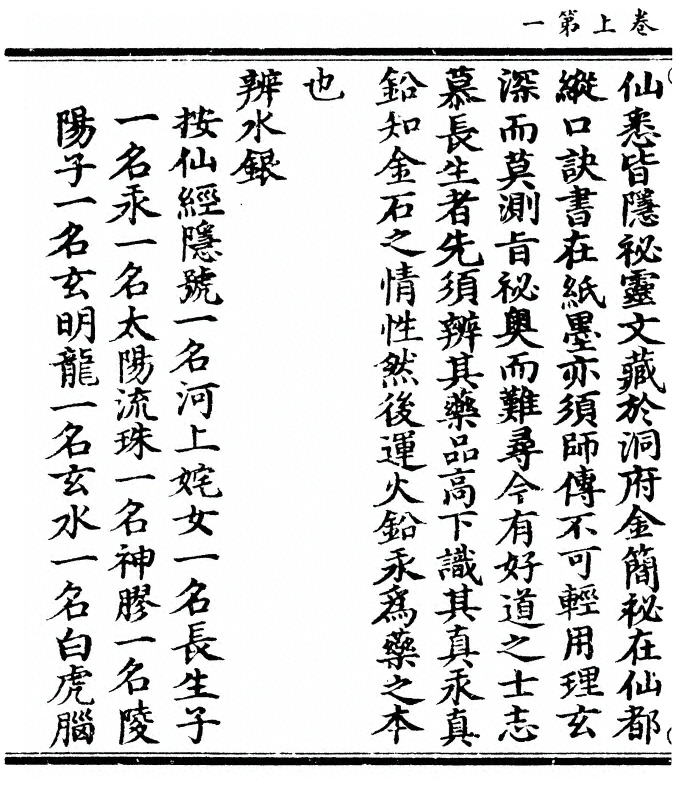 卷上第一
仙悉皆隱祕靈文藏於洞府金簡祕在仙都
縱口訣書在紙墨亦須師傳不可輕用理玄
深而莫測旨祕奧而難尋今有好道之士志
慕長生者先須辨其藥品高下識其真汞真
鉛知金石之情性然後運火鉛汞為藥之本
也
辨水銀
按仙經隱號一名河上姹女一名長生子
一名汞一名太陽流珠一名神膠一名陵
陽子一名玄明龍一名玄水一名白虎腦